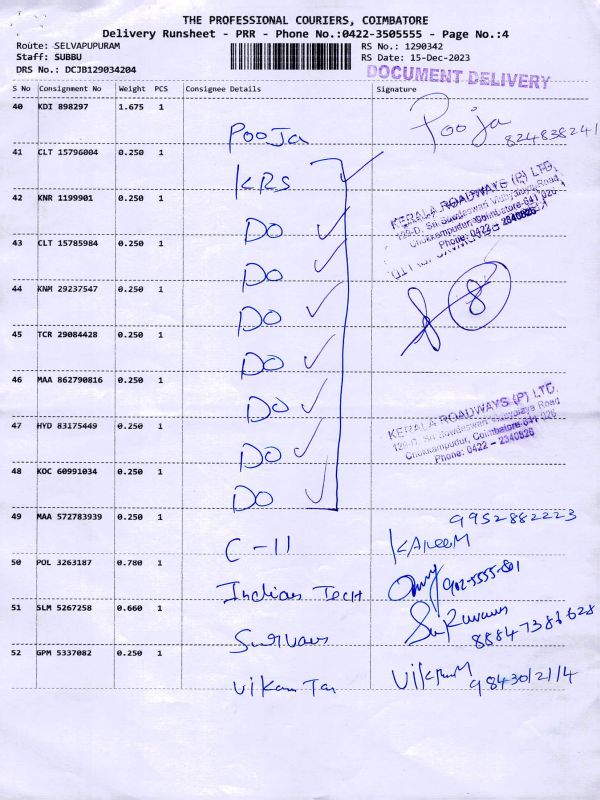 THE PROFESSIONAL COURIERS, COIMBATORE
Delivery Runsheet - PRR - Phone No.:0422-3505555 - Page No.:4
Route: SELVAPUPURAM
Staff: SUBBU
DRS No.: DCJB129034204
RS No.: 1290342
RS Date: 15-Dec-2023
DOCUMENT DELIVERY
S No Consignment No Weight PCS Consignee Details Signature
40 KDI 898297 1.675 1
Pooja Pooja
824838241
41 CLT 15796004 0.250 1
KRS
KERALA ROADWAYS (P) LTD.
129-D, Sri Suwdeswari Vidhyalaya Road
Chokkampudur, Coimbatore-641 026
Phone: 0422 - 2340826
42 KNR 1199901 0.250 1
DO
43 CLT 15785984 0.250 1
DO
44 KNM 29237547 0.250 1
DO
8
45 TCR 29084428 0.250 1
DO
46 MAA 862790816 0.250 1
DO
KERALA ROADWAYS (P) LTD.
129-D, Sri Suwdeswari Vidhyalaya Road
Chokkampudur, Coimbatore-641 026
Phone: 0422 - 2340826
47 HYD 83175449 0.250 1
DO
48 KOC 60991034 0.250 1
DO
49 MAA 572783939 0.250 1
9952882223
C-11 KAReeM
50 POL 3263187 0.780 1
Indian Tech
51 SLM 5267258 0.660 1
52 GPM 5337082 0.250 1